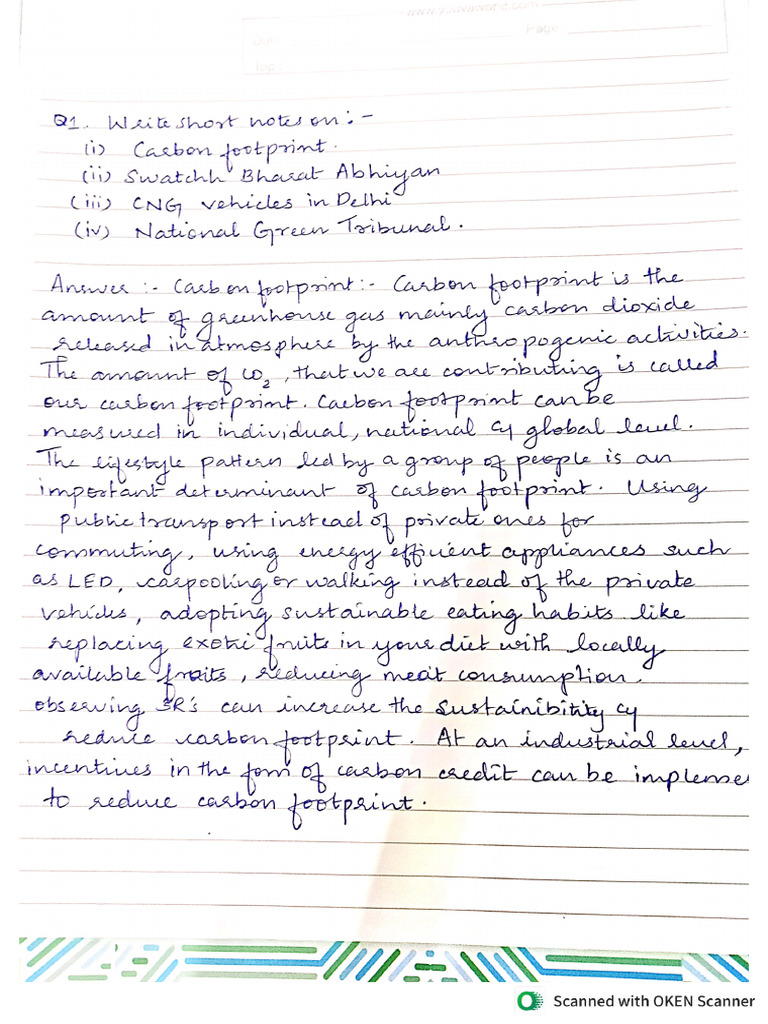 Page
Q1. Write short notes on :-
(i) Carbon footprint.
(ii) Swatchh Bharat Abhiyan
(iii) CNG vehicles in Delhi
(iv) National Green Tribunal.
Answer :- Carbon footprint :- Carbon footprint is the
amount of greenhouse gas mainly carbon dioxide
released in atmosphere by the anthropogenic activities.
The amount of CO2, that we are contributing is called
our carbon footprint. Carbon footprint can be
measured in individual, national & global level.
The lifestyle pattern led by a group of people is an
important determinant of carbon footprint. Using
public transport instead of private ones for
commuting, using energy efficient appliances such
as LED, carpooling or walking instead of the private
vehicles, adopting sustainable eating habits like
replacing exotic fruits in your diet with locally
available fruits, reducing meat consumption.
observing 3R's can increase the sustainibitity &
reduce carbon footprint. At an industrial level,
incentives in the form of carbon credit can be impleme
to reduce carbon footprint.
Scanned with OKEN Scanner